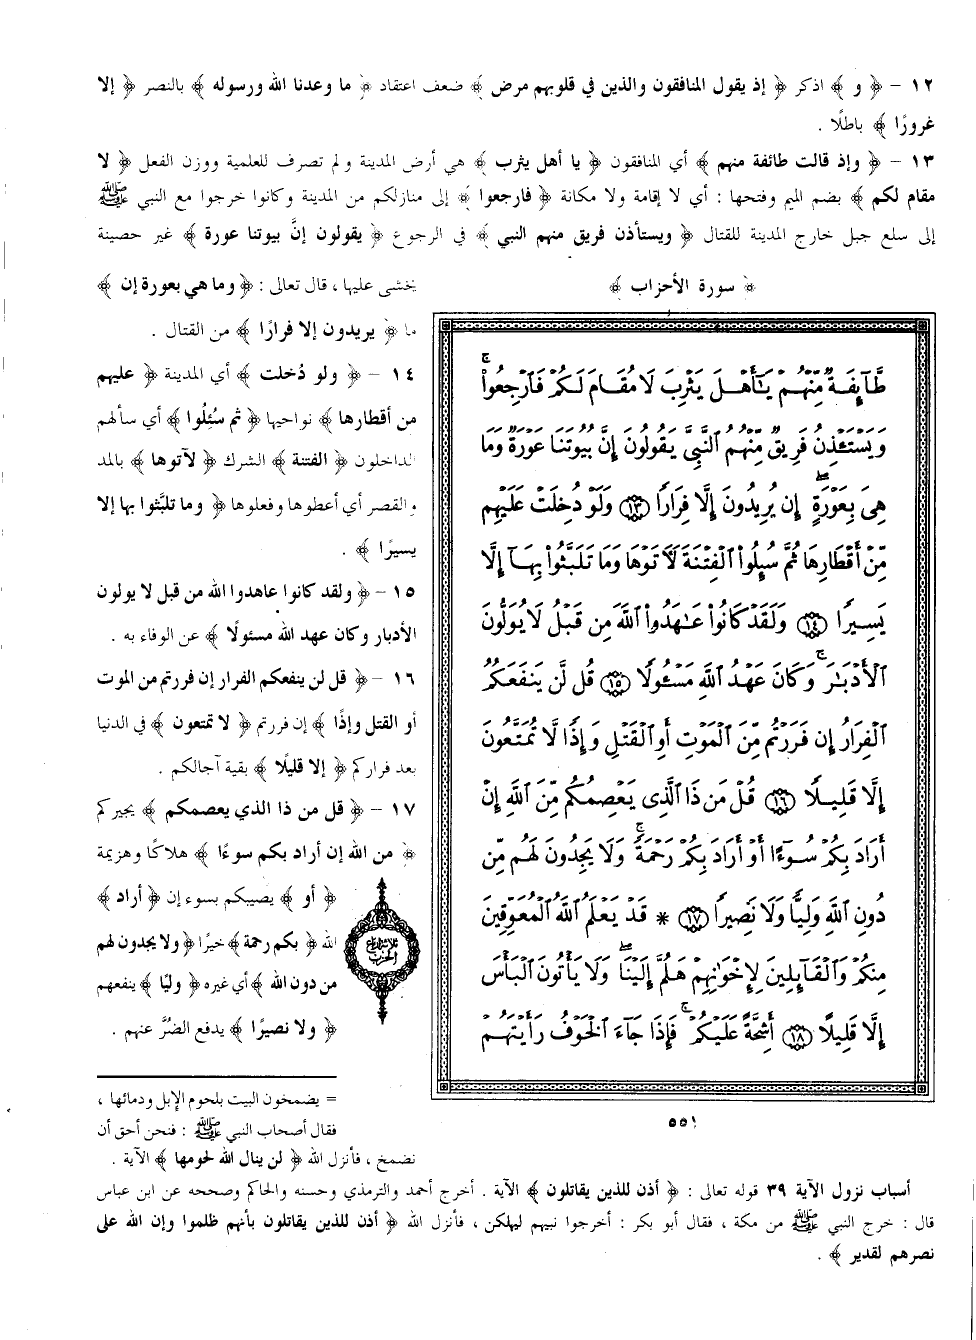 ١٢ – ﴿ و ﴾ اذكر ﴿ إذ يقول المنافقون والذين في قلوبهم مرض ﴾ ضعف اعتقاد ﴿ ما وعدنا الله ورسوله ﴾ بالنصر ﴿ إلا
غرورًا ﴾ باطلًا .
١٣ – ﴿ وإذ قالت طائفة منهم ﴾ أي المنافقون ﴿ يا أهل يثرب ﴾ هي أرض المدينة ولم تصرف للعلمية ووزن الفعل ﴿ لا
مقام لكم ﴾ بضم الميم وفتحها : أي لا إقامة ولا مكانة ﴿ فارجعوا ﴾ إلى منازلكم من المدينة وكانوا خرجوا مع النبي ﷺ
إلى سلع جبل خارج المدينة للقتال ﴿ ويستأذن فريق منهم النبي ﴾ في الرجوع ﴿ يقولون إنَّ بيوتنا عورة ﴾ غير حصينة
﴿ سورة الأحزاب ﴾
طَّآئِفَةٌ مِّنْهُمْ يَٰٓأَهْلَ يَثْرِبَ لَا مُقَامَ لَكُمْ فَٱرْجِعُوا۟ ۚ
وَيَسْتَـْٔذِنُ فَرِيقٌ مِّنْهُمُ ٱلنَّبِىَّ يَقُولُونَ إِنَّ بُيُوتَنَا عَوْرَةٌ وَمَا
هِىَ بِعَوْرَةٍ ۖ إِن يُرِيدُونَ إِلَّا فِرَارًا ١٣ وَلَوْ دُخِلَتْ عَلَيْهِم
مِّنْ أَقْطَارِهَا ثُمَّ سُئِلُوا۟ ٱلْفِتْنَةَ لَأٓتَوْهَا وَمَا تَلَبَّثُوا۟ بِهَآ إِلَّا
يَسِيرًا ١٤ وَلَقَدْ كَانُوا۟ عَٰهَدُوا۟ ٱللَّهَ مِن قَبْلُ لَا يُوَلُّونَ
ٱلْأَدْبَٰرَ ۚ وَكَانَ عَهْدُ ٱللَّهِ مَسْـُٔولًا ١٥ قُل لَّن يَنفَعَكُمُ
ٱلْفِرَارُ إِن فَرَرْتُم مِّنَ ٱلْمَوْتِ أَوِ ٱلْقَتْلِ وَإِذًا لَّا تُمَتَّعُونَ
إِلَّا قَلِيلًا ١٦ قُلْ مَن ذَا ٱلَّذِى يَعْصِمُكُم مِّنَ ٱللَّهِ إِنْ
أَرَادَ بِكُمْ سُوٓءًا أَوْ أَرَادَ بِكُمْ رَحْمَةً ۚ وَلَا يَجِدُونَ لَهُم مِّن
دُونِ ٱللَّهِ وَلِيًّا وَلَا نَصِيرًا ١٧ * قَدْ يَعْلَمُ ٱللَّهُ ٱلْمُعَوِّقِينَ
مِنكُمْ وَٱلْقَآئِلِينَ لِإِخْوَٰنِهِمْ هَلُمَّ إِلَيْنَا ۖ وَلَا يَأْتُونَ ٱلْبَأْسَ
إِلَّا قَلِيلًا ١٨ أَشِحَّةً عَلَيْكُمْ ۖ فَإِذَا جَآءَ ٱلْخَوْفُ رَأَيْتَهُمْ
٥٥١
يخشى عليها ، قال تعالى : ﴿ وما هي بعورة إن ﴾
ما ﴿ يريدون إلا فرارًا ﴾ من القتال .
١٤ – ﴿ ولو دُخلت ﴾ أي المدينة ﴿ عليهم
من أقطارها ﴾ نواحيها ﴿ ثم سُئِلُوا ﴾ أي سألهم
الداخلون ﴿ الفتنة ﴾ الشرك ﴿ لآتوها ﴾ بالمد
والقصر أي أعطوها وفعلوها ﴿ وما تلبَّثوا بها إلا
يسيرًا ﴾ .
١٥ – ﴿ ولقد كانوا عاهدوا الله من قبل لا يولون
الأدبار وكان عهد الله مسئولًا ﴾ عن الوفاء به .
١٦ – ﴿ قل لن ينفعكم الفرار إن فررتم من الموت
أو القتل وإذًا ﴾ إن فررتم ﴿ لا تمتعون ﴾ في الدنيا
بعد فراركم ﴿ إلا قليلًا ﴾ بقية آجالكم .
١٧ – ﴿ قل من ذا الذي يعصمكم ﴾ يجيركم
﴿ من الله إن أراد بكم سوءًا ﴾ هلاكًا وهزيمة
﴿ أو ﴾ يصيبكم بسوء إن ﴿ أراد ﴾
الله ﴿ بكم رحمة ﴾ خيرًا ﴿ ولا يجدون لهم
من دون الله ﴾ أي غيره ﴿ وليًا ﴾ ينفعهم
﴿ ولا نصيرًا ﴾ يدفع الضُرَّ عنهم .
ثلاثة ارباع
الحزب
= يضمخون البيت بلحوم الإبل ودمائها ،
فقال أصحاب النبي ﷺ : فنحن أحق أن
نضمخ ، فأنزل الله ﴿ لن ينال الله لحومها ﴾ الآية .
أسباب نزول الآية ٣٩ قوله تعالى : ﴿ أذن للذين يقاتلون ﴾ الآية . أخرج أحمد والترمذي وحسنه والحاكم وصححه عن ابن عباس
قال : خرج النبي ﷺ من مكة ، فقال أبو بكر : أخرجوا نبيهم ليهلكن ، فأنزل الله ﴿ أذن للذين يقاتلون بأنهم ظلموا وإن الله على
نصرهم لقدير ﴾ .